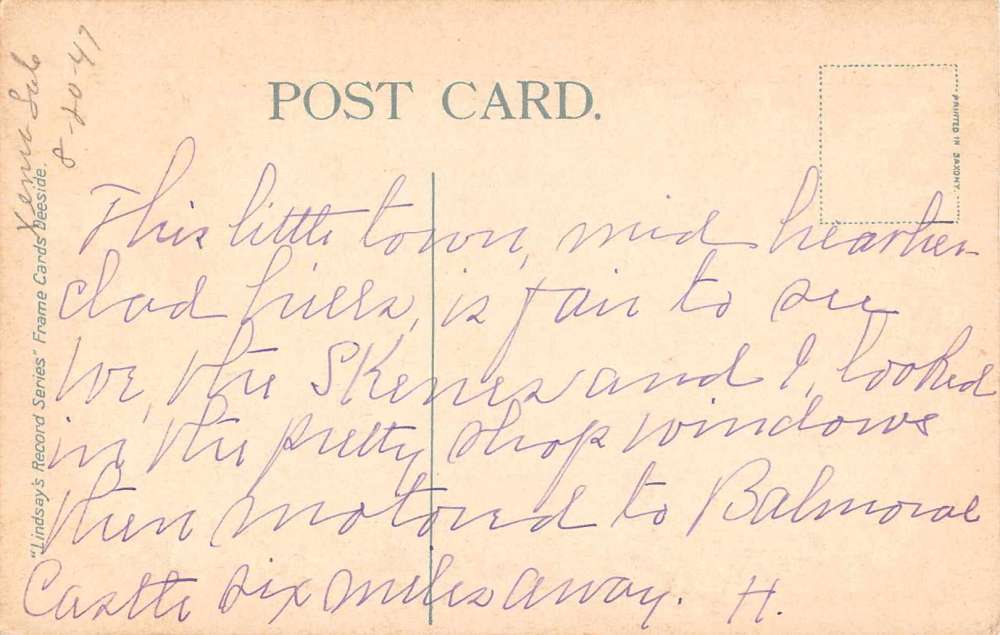 POST CARD.
PRINTED IN SAXONY.
8-20-47
"Lindsay's Record Series" Frame Cards Deeside.
This little town, mid heather
clad hills, is fair to see
We, the Skenes and I, looked
in the pretty shop windows
then motored to Balmoral
Castle six miles away. H.